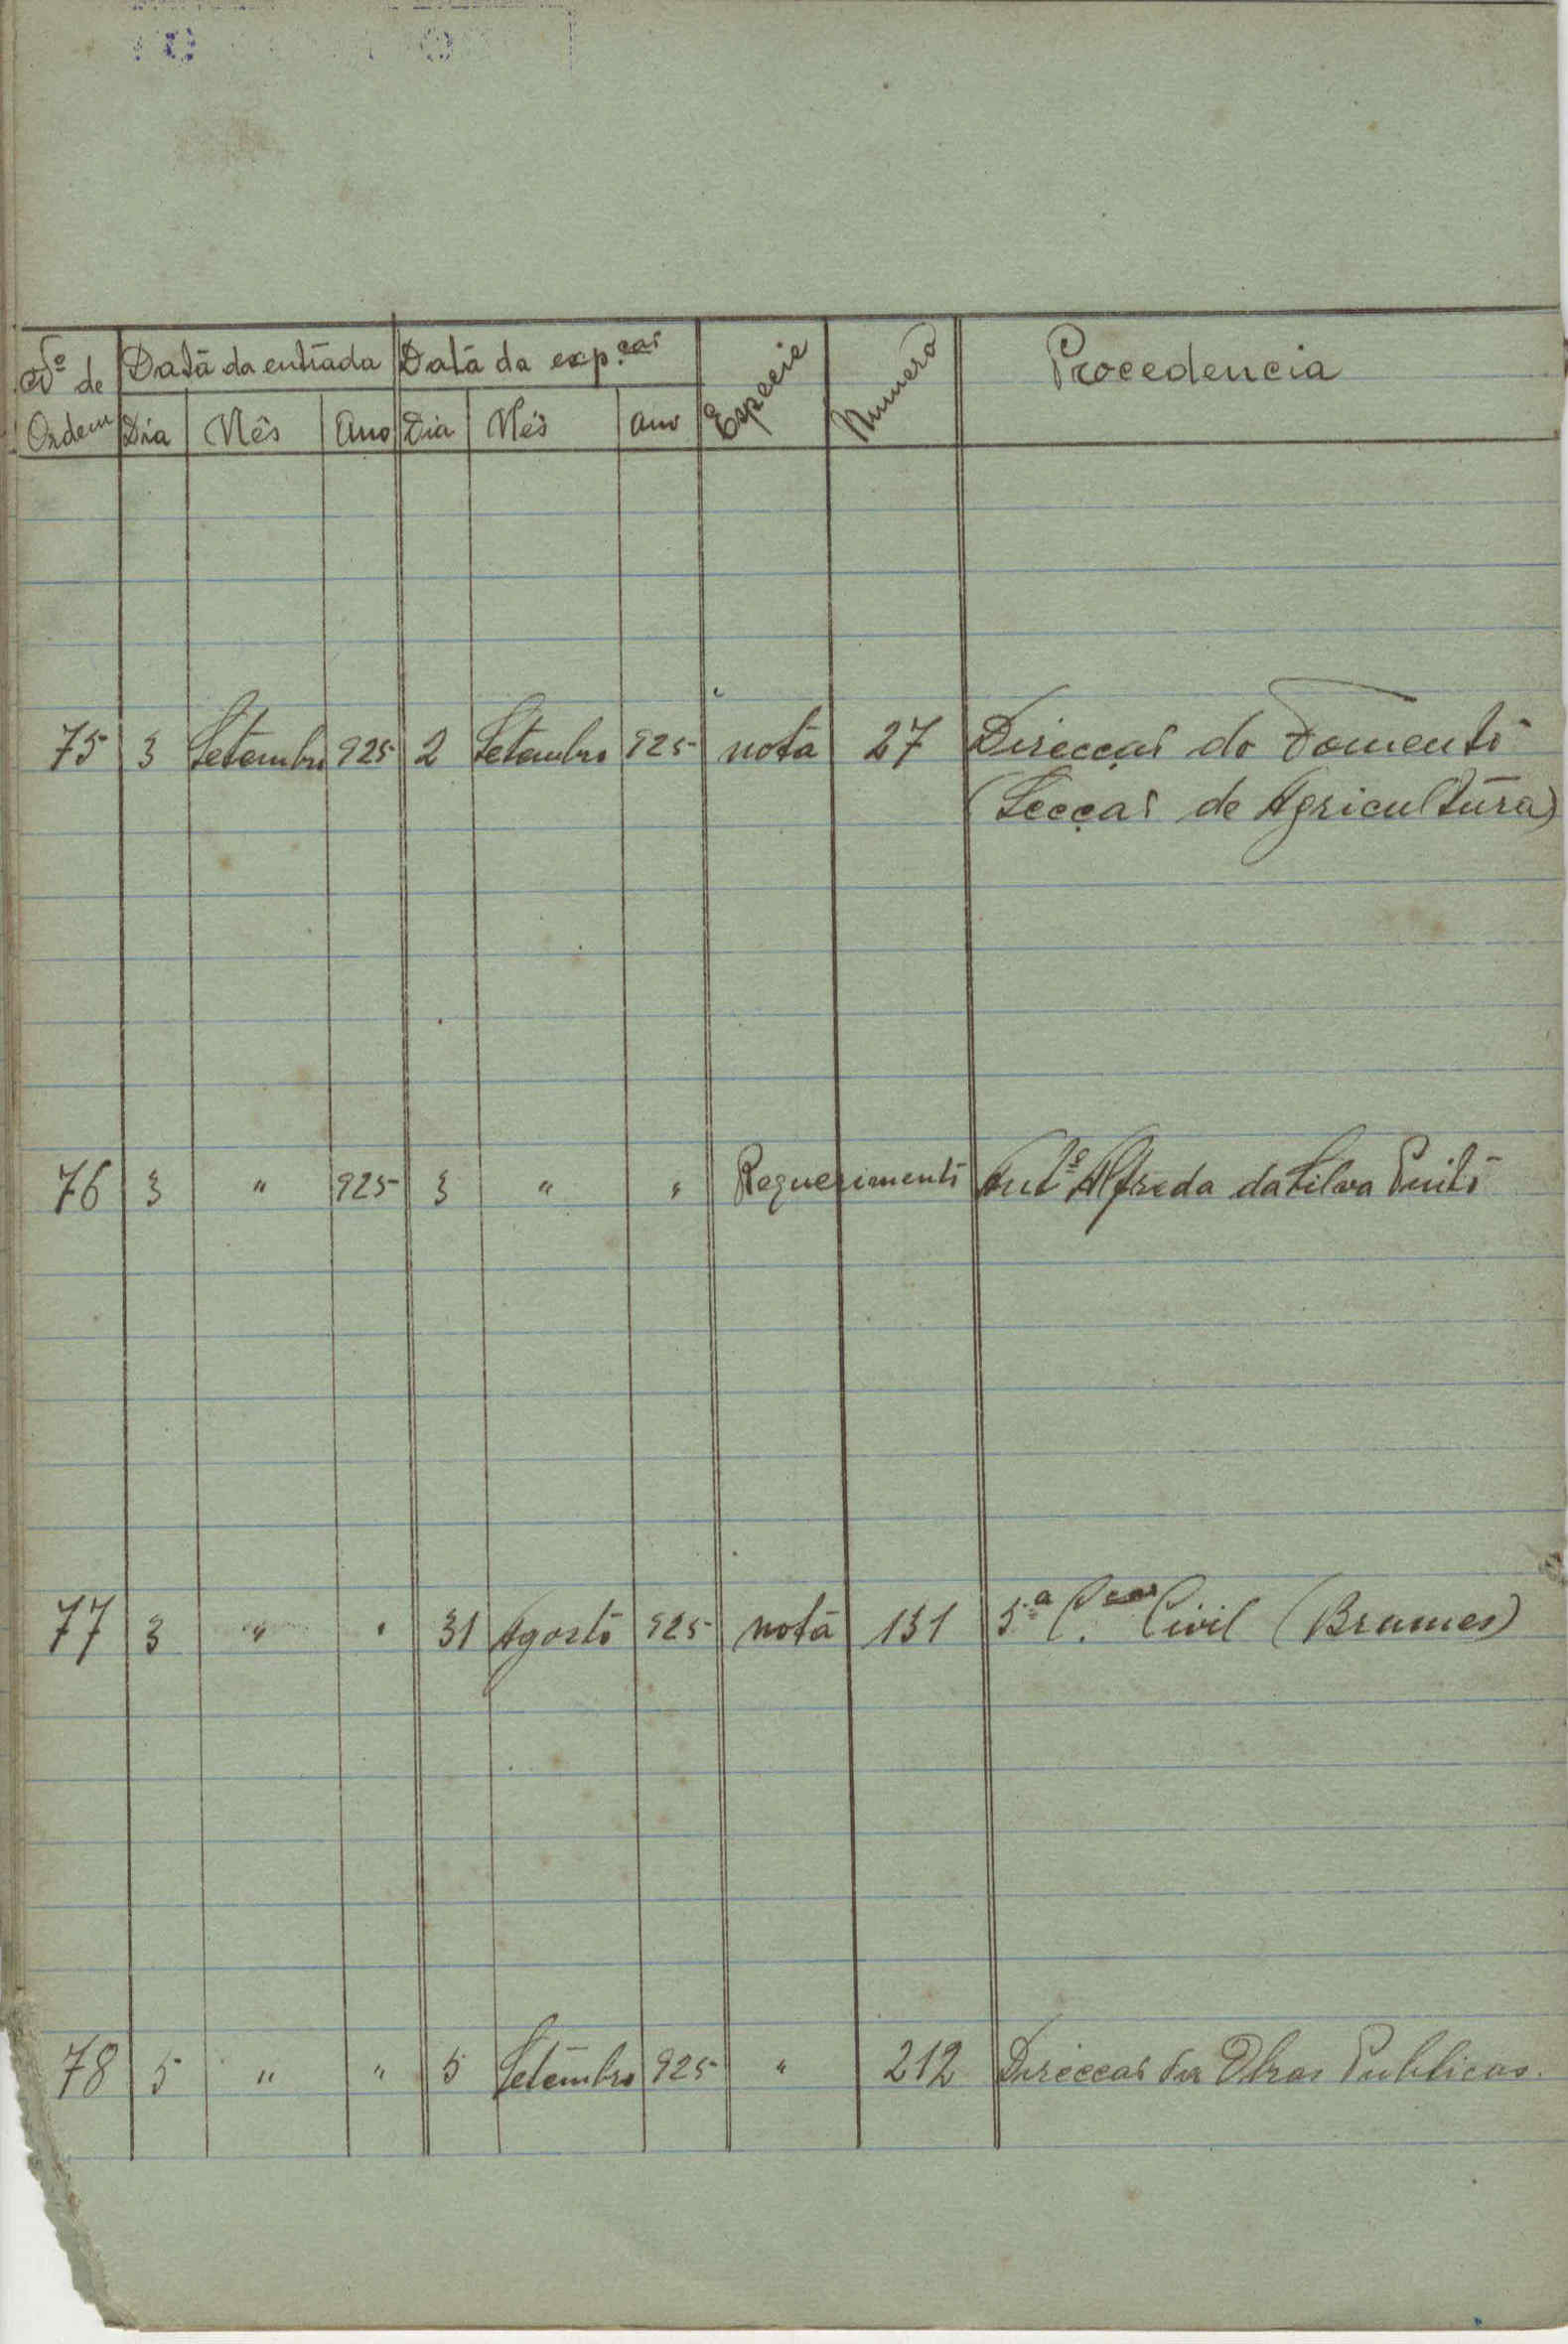 Nº de Ordem Data da entrada Data da exp.ção Especie Numero Procedencia
Dia Mês Ano Dia Mês Ano
75 3 Setembro 925 2 Setembro 925 nota 27 Direcção do Fomento
(Secção de Agricultura)
76 3 " 925 3 " " Requerimento Antº Alfredo da Silva
77 3 " " 31 Agosto 925 nota 131 5.ª C.ção Civil (Brames)
78 5 " " 5 Setembro 925 " 212 Direcção das Obras Publicas.